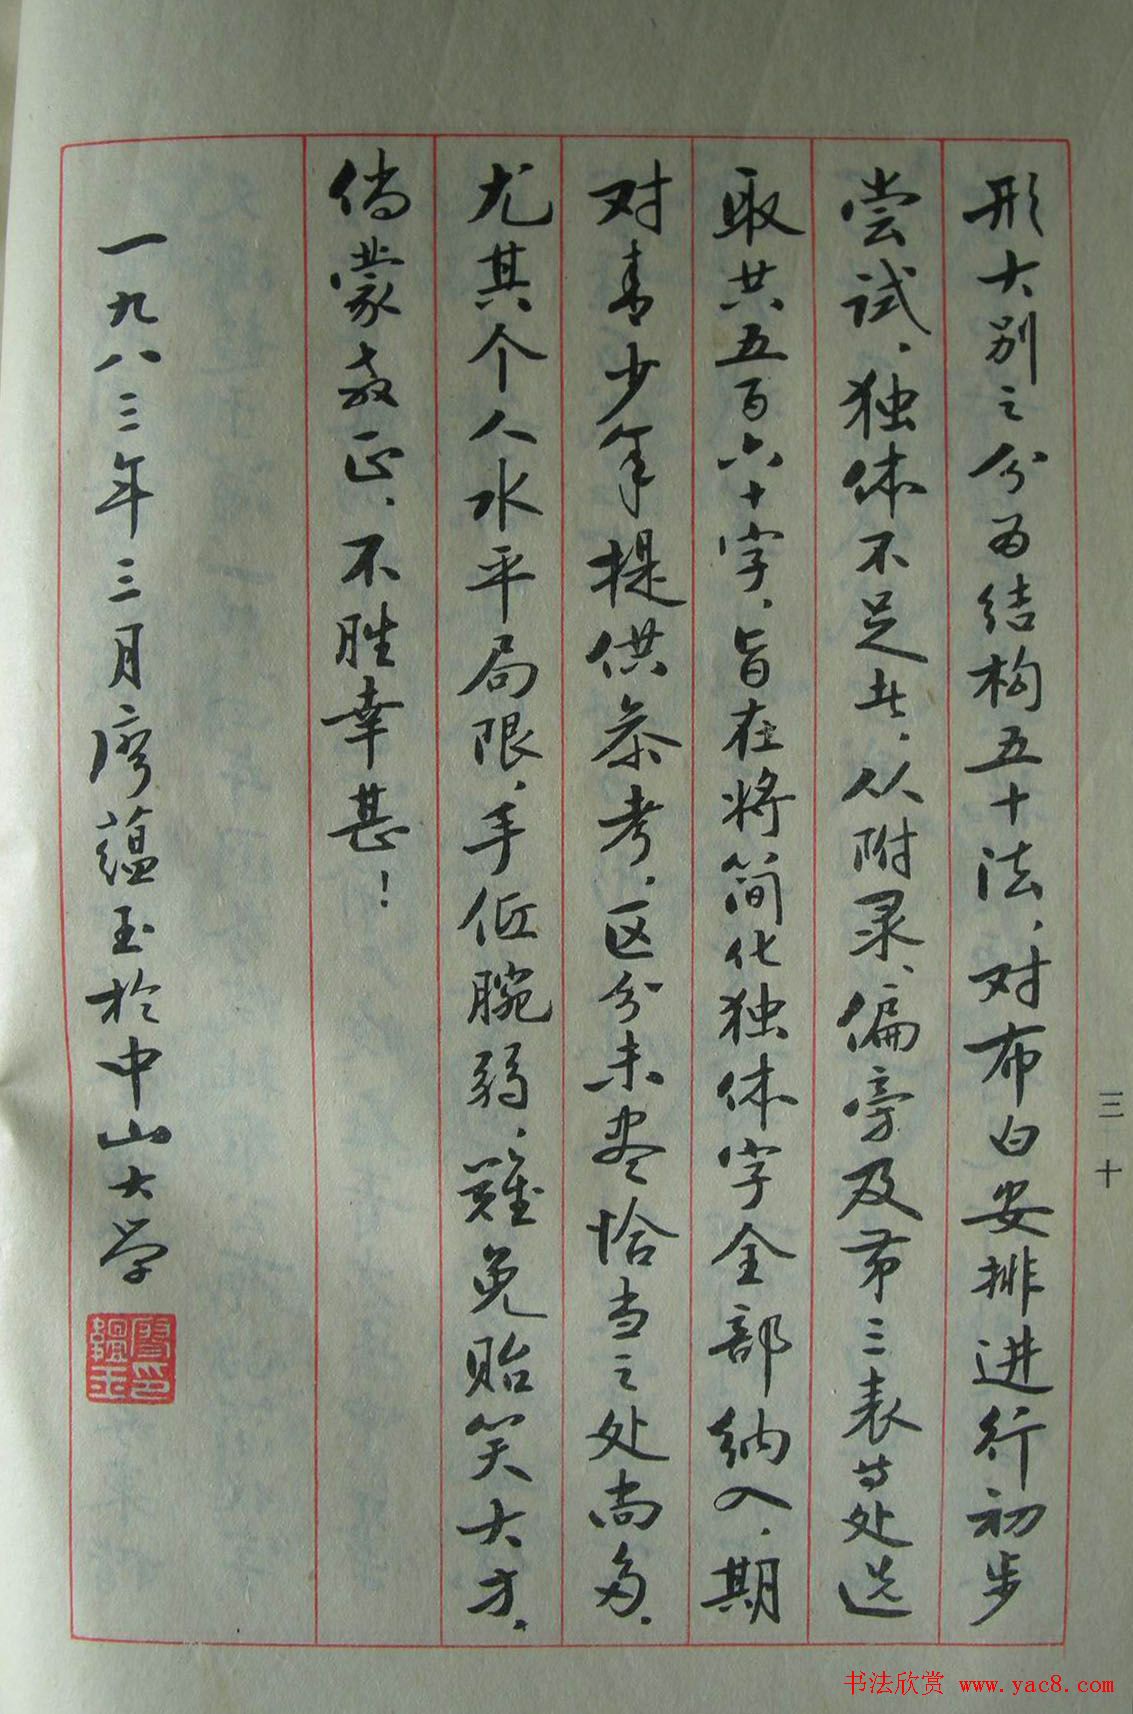 形大别之分为结构五十法，对布白安排进行初步
尝试，独体不足者，从附录、偏旁及第二表等处选
取共五百六十字，旨在将简化独体字全部纳入，期
对青少年提供参考，区分未尽恰当之处尚多，
尤其个人水平局限，手低腕弱，难免贻笑大方，
倘蒙教正，不胜幸甚！
一九八三年三月廖蕴玉於中山大学
廖印
韫玉
三十
书法欣赏 www.yac8.com